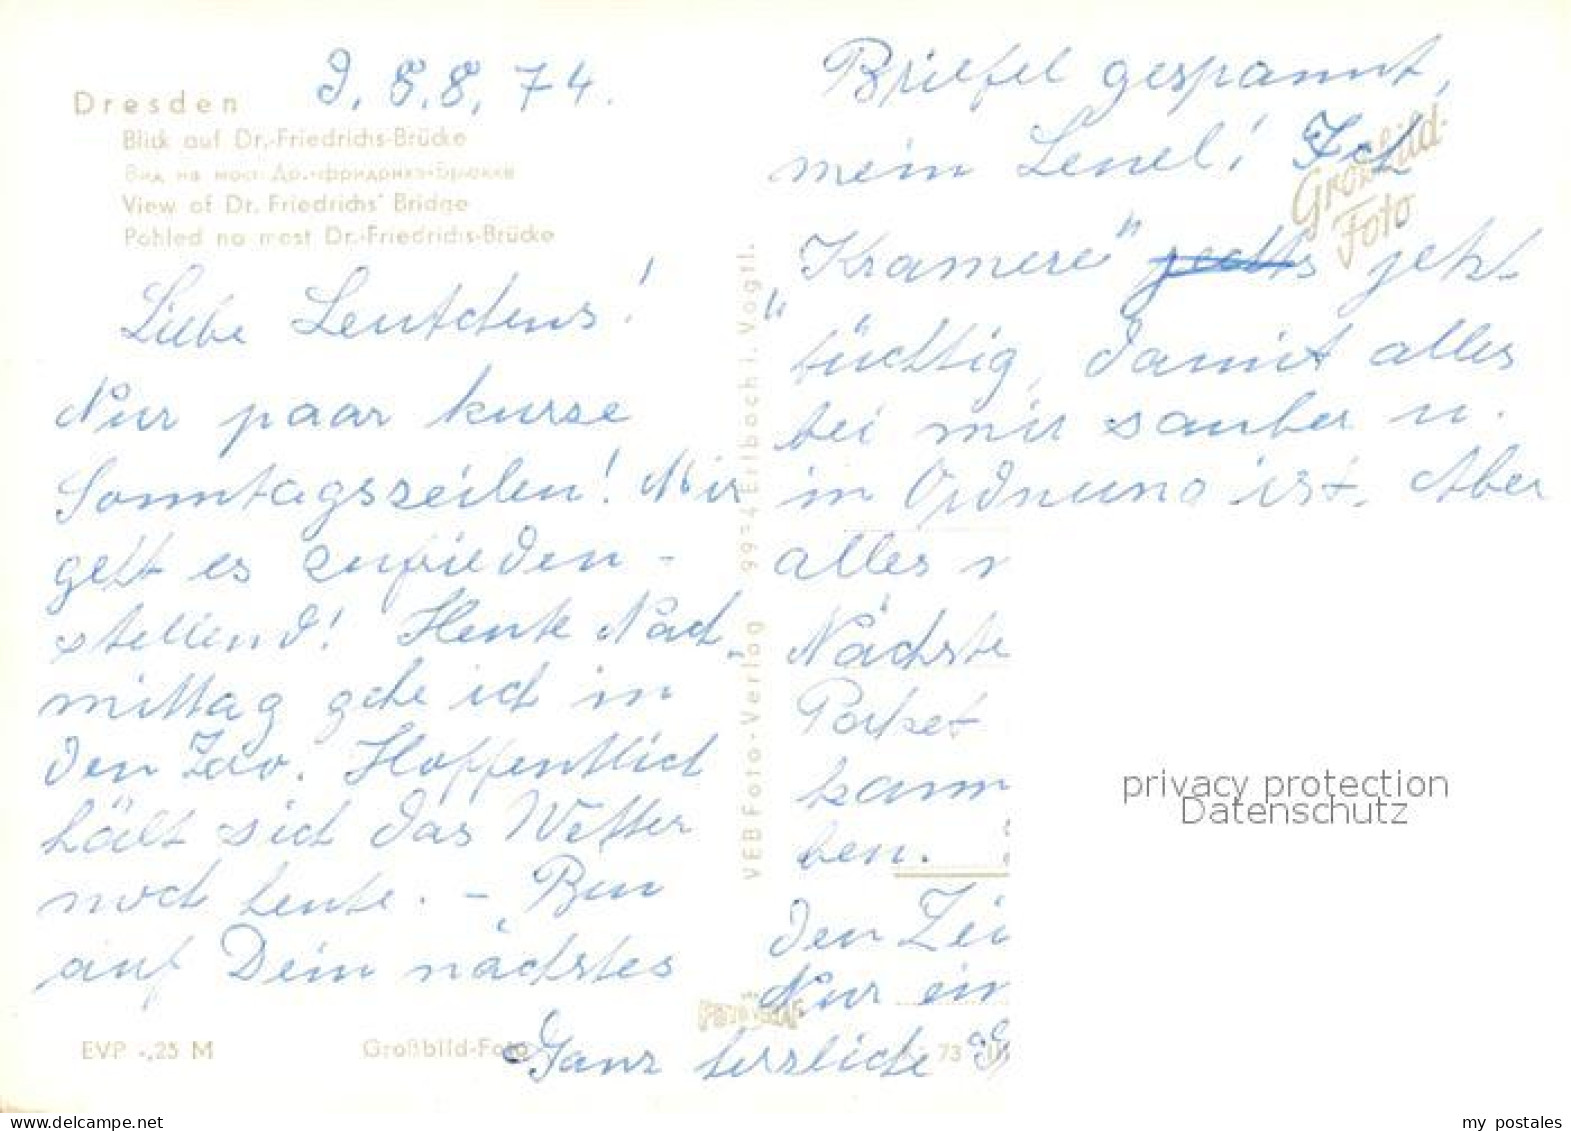 D., 5.8.74.
Dresden
Blick auf Dr.-Friedrichs-Brücke
Вид на мост Др.-Фридрихс-Брюкке
View of Dr. Friedrichs' Bridge
Pohled na most Dr.-Friedrichs-Brücke
Liebe Leutchens!
Nur paar kurze
Sonntagszeilen! Mir
geht es zufrieden-
stellend! Heute Nach-
mittag gehe ich in
den Zoo. Hoffentlich
hält sich das Wetter
noch heute. – Bin
auf Dein nächstes
EVP -,25 M
Großbild-Foto
VEB Foto-Verlag 99=4 Erlbach i. Vogtl.
Briefel gespannt,
mein Lenel! Ich
Großbild-
Foto
„Kramere" jetzt
tüchtig, damit alles
bei mir sauber u.
in Ordnung ist. Aber
alles
Nächste
Paket
kann
ben.
den
Nur
Ganz herzliche
73
privacy protection
Datenschutz
my postales